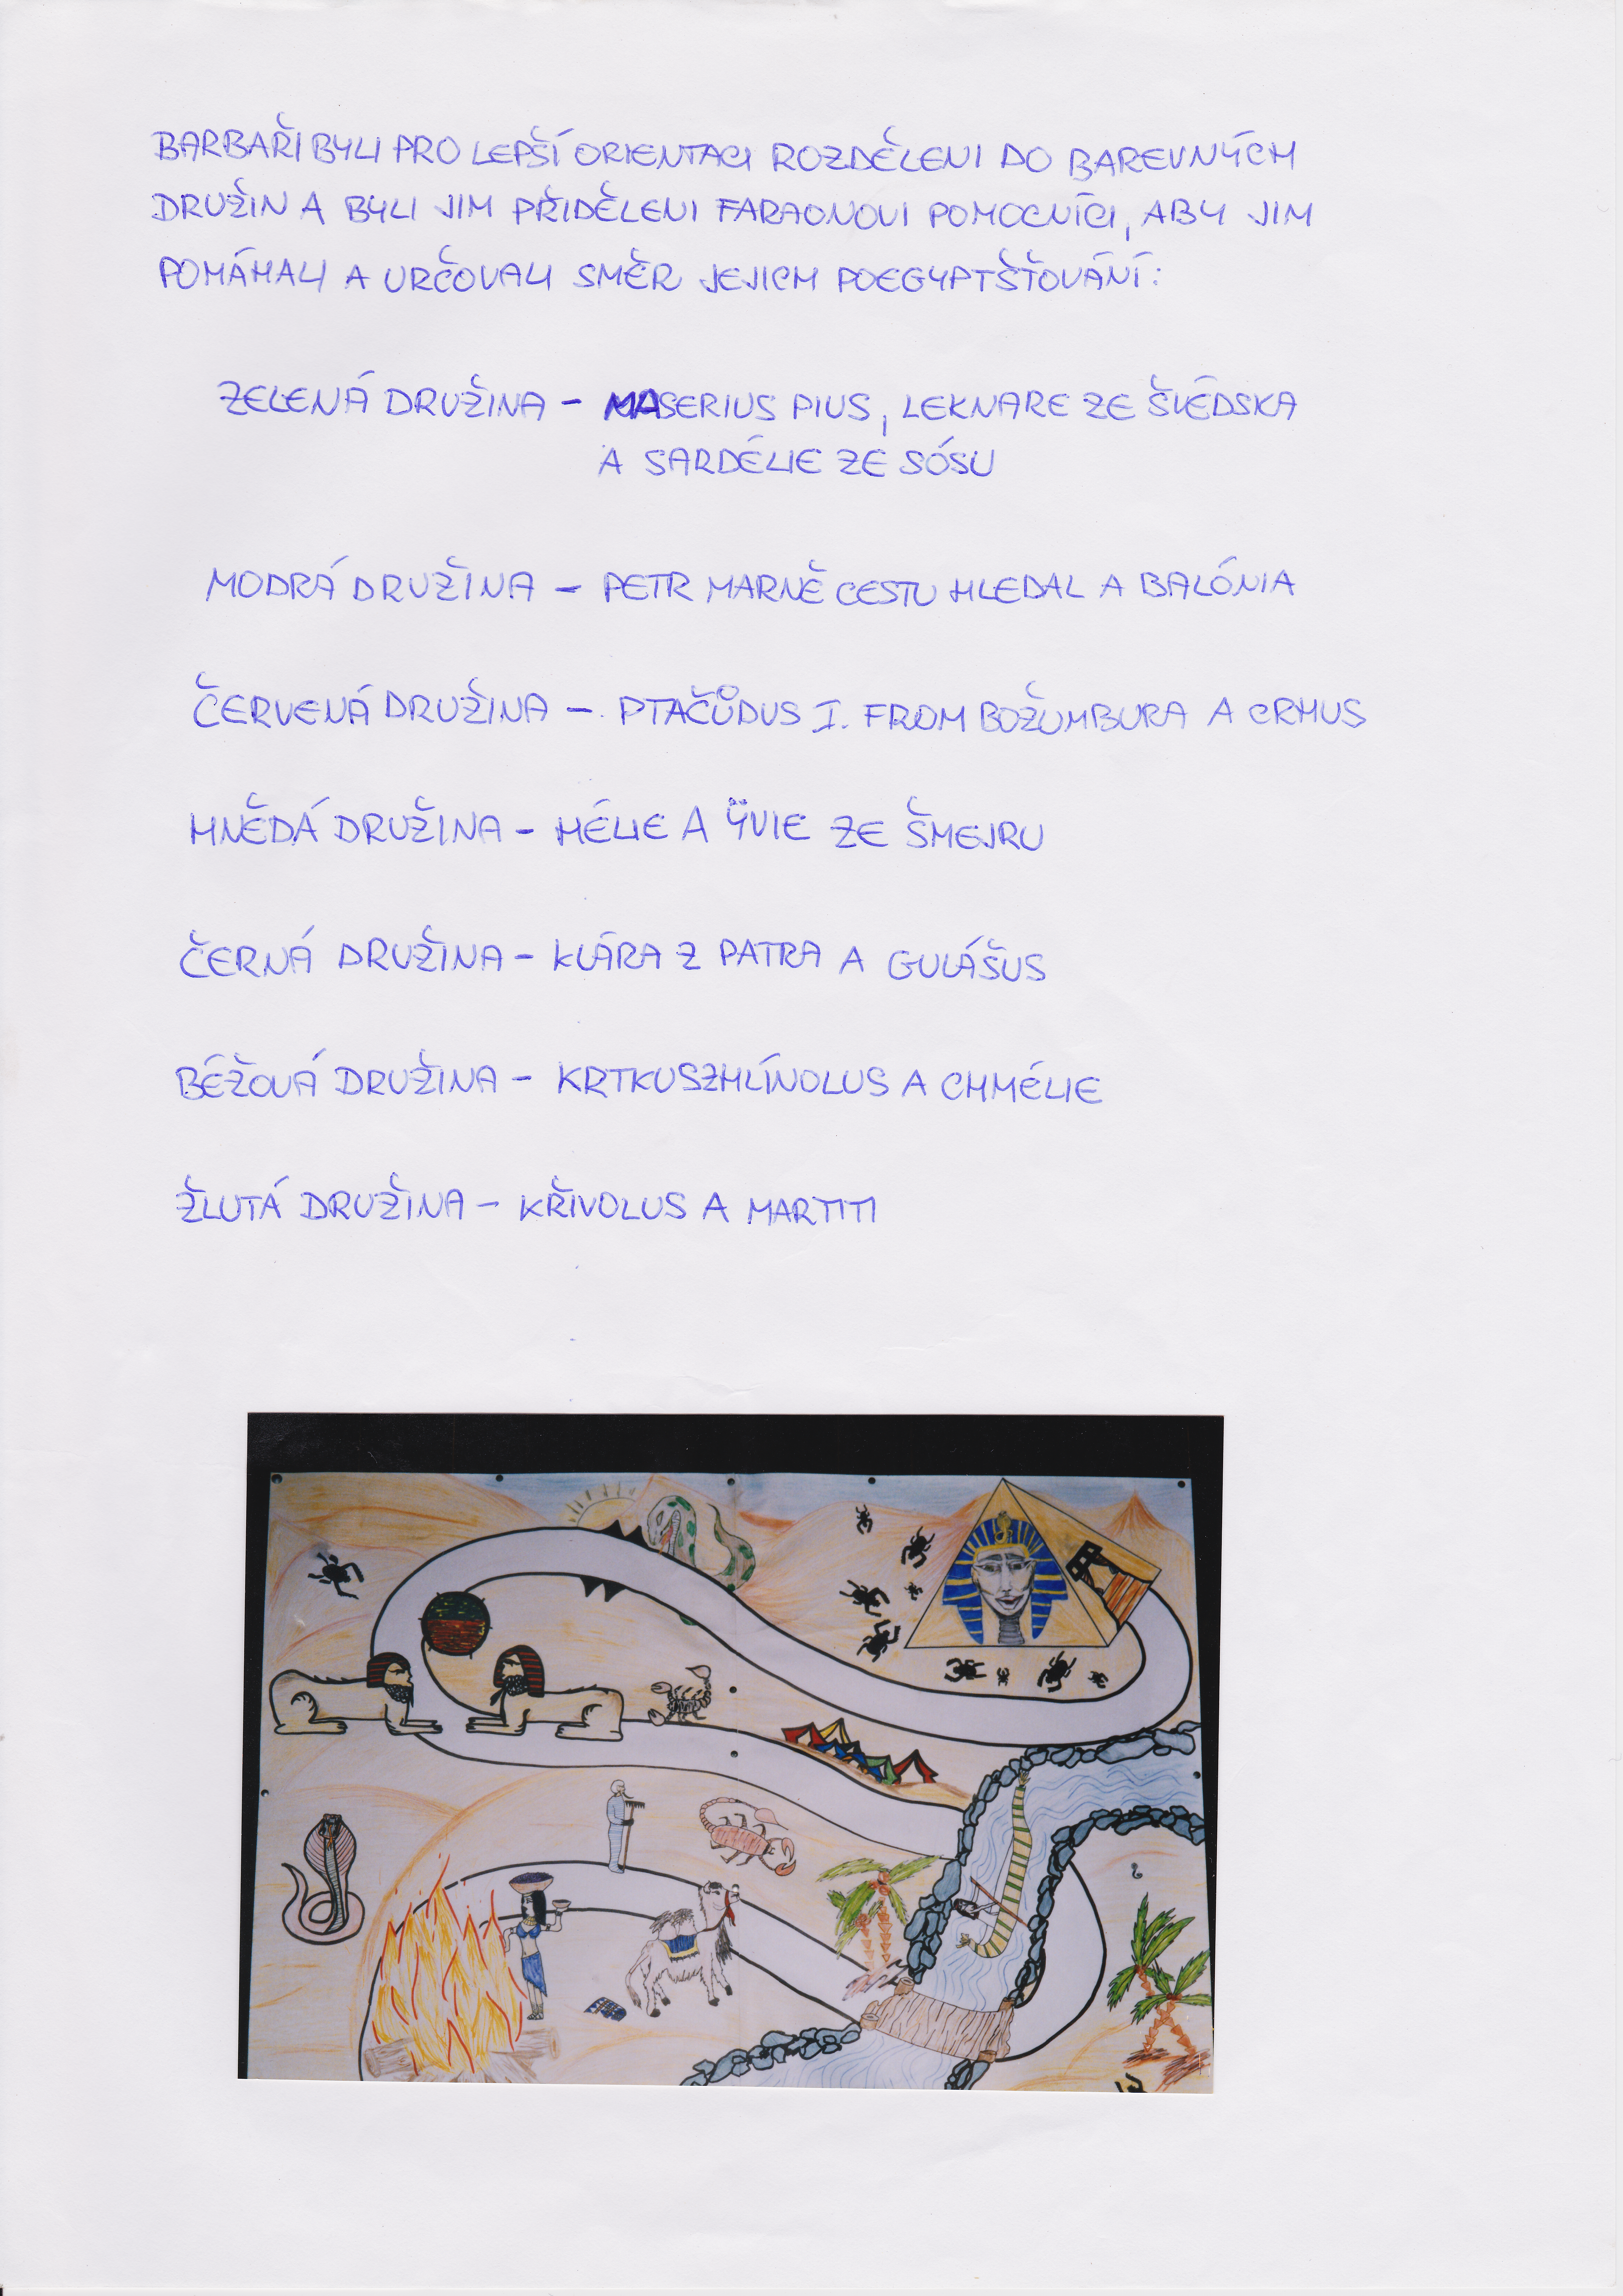 BARBAŘI BYLI PRO LEPŠÍ ORIENTACI ROZDĚLENI DO BAREVNÝCH
DRUŽIN A BYLI JIM PŘIDĚLENI FARAONOVI POMOCNÍCI, ABY JIM
POMÁHALI A URČOVALI SMĚR JEJICH POEGYPTŠŤOVÁNÍ:
ZELENÁ DRUŽINA - MASERIUS PIUS, LEKNARE ZE ŠVÉDSKA
A SARDÉLIE ZE SÓSU
MODRÁ DRUŽINA - PETR MARNĚ CESTU HLEDAL A BALÓNIA
ČERVENÁ DRUŽINA - PTAČŮDUS I. FROM BOŽUMBURA A CRHUS
HNĚDÁ DRUŽINA - HÉLIE A ŸVIE ZE ŠMEJRU
ČERNÁ DRUŽINA - KLÁRA Z PATRA A GULÁŠUS
BÉŽOVÁ DRUŽINA - KRTKUSZHLÍNOLUS A CHMÉLIE
ŽLUTÁ DRUŽINA - KŘIVOLUS A MARTITI